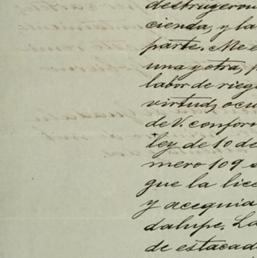 destruyeron
cienda, y la
parte. Me e
una y otra, p
labor de rieg
virtud, ocu
de V. conform
ley de 10 de
mero 109 s
que la lice
y acequia
dalupe. La
de estacad